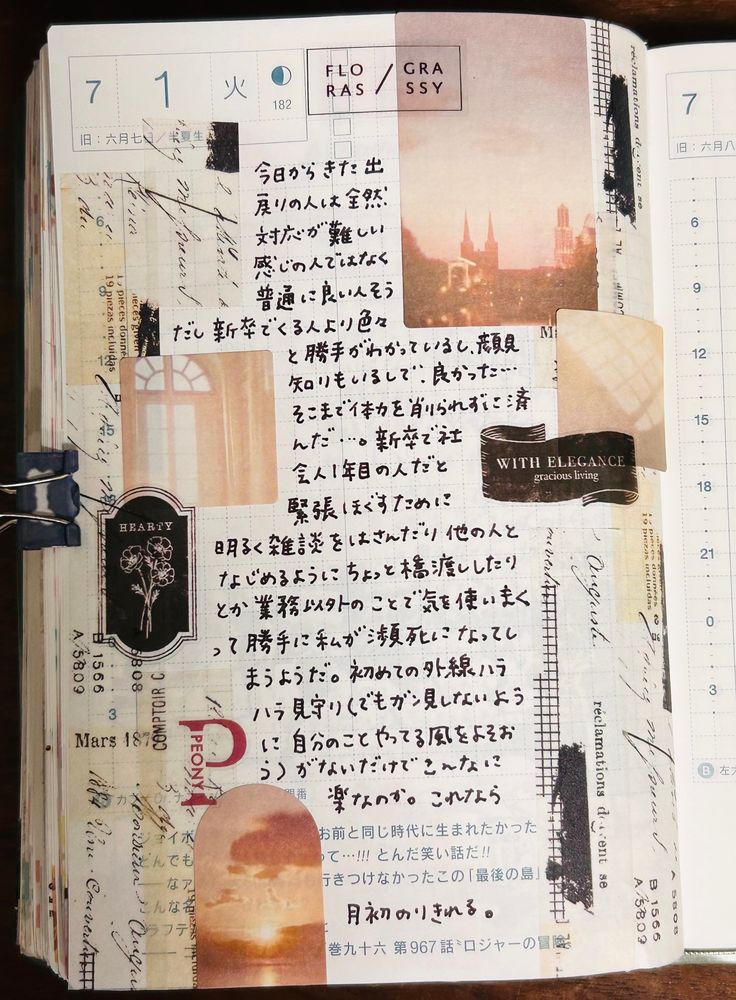 7 1 火
182
旧：六月七日／半夏生
FLO RAS / GRA SSY
今日からきた出
戻りの人は全然
対応が難しい
感じの人ではなく
普通に良い人そう
だし新卒でくる人より色々
と勝手がわかっているし、顔見
知りもいるしで、良かった…
そこまで体力を削られずに済
んだ…。新卒で社
会人1年目の人だと
緊張ほぐすために
明るく雑談をはさんだり他の人と
なじめるようにちょっと橋渡ししたり
とか業務以外のことで気を使いまく
って勝手に私が瀕死になってし
まうようだ。初めての外線ハラ
ハラ見守り(でもガン見しないよう
に自分のことやってる風をよそお
う)がないだけでこんなに
楽なのか。これなら
月初のりきれる。
WITH ELEGANCE
gracious living
HEARTY
PEONY
COMPTOIR
Mars 187
B 1566
A 5808
A 5809
お前と同じ時代に生まれたかった
って…!!! とんだ笑い話だ!!
行きつけなかったこの「最後の島」
巻九十六 第967話"ロジャーの冒険
réclamations
19 pièces données
19 piezas incluidas
August
réclamations
B 1566
A 5808
A 5809
6
9
12
15
3
7
旧：六月八
6
9
12
15
18
21
0
3
B 左